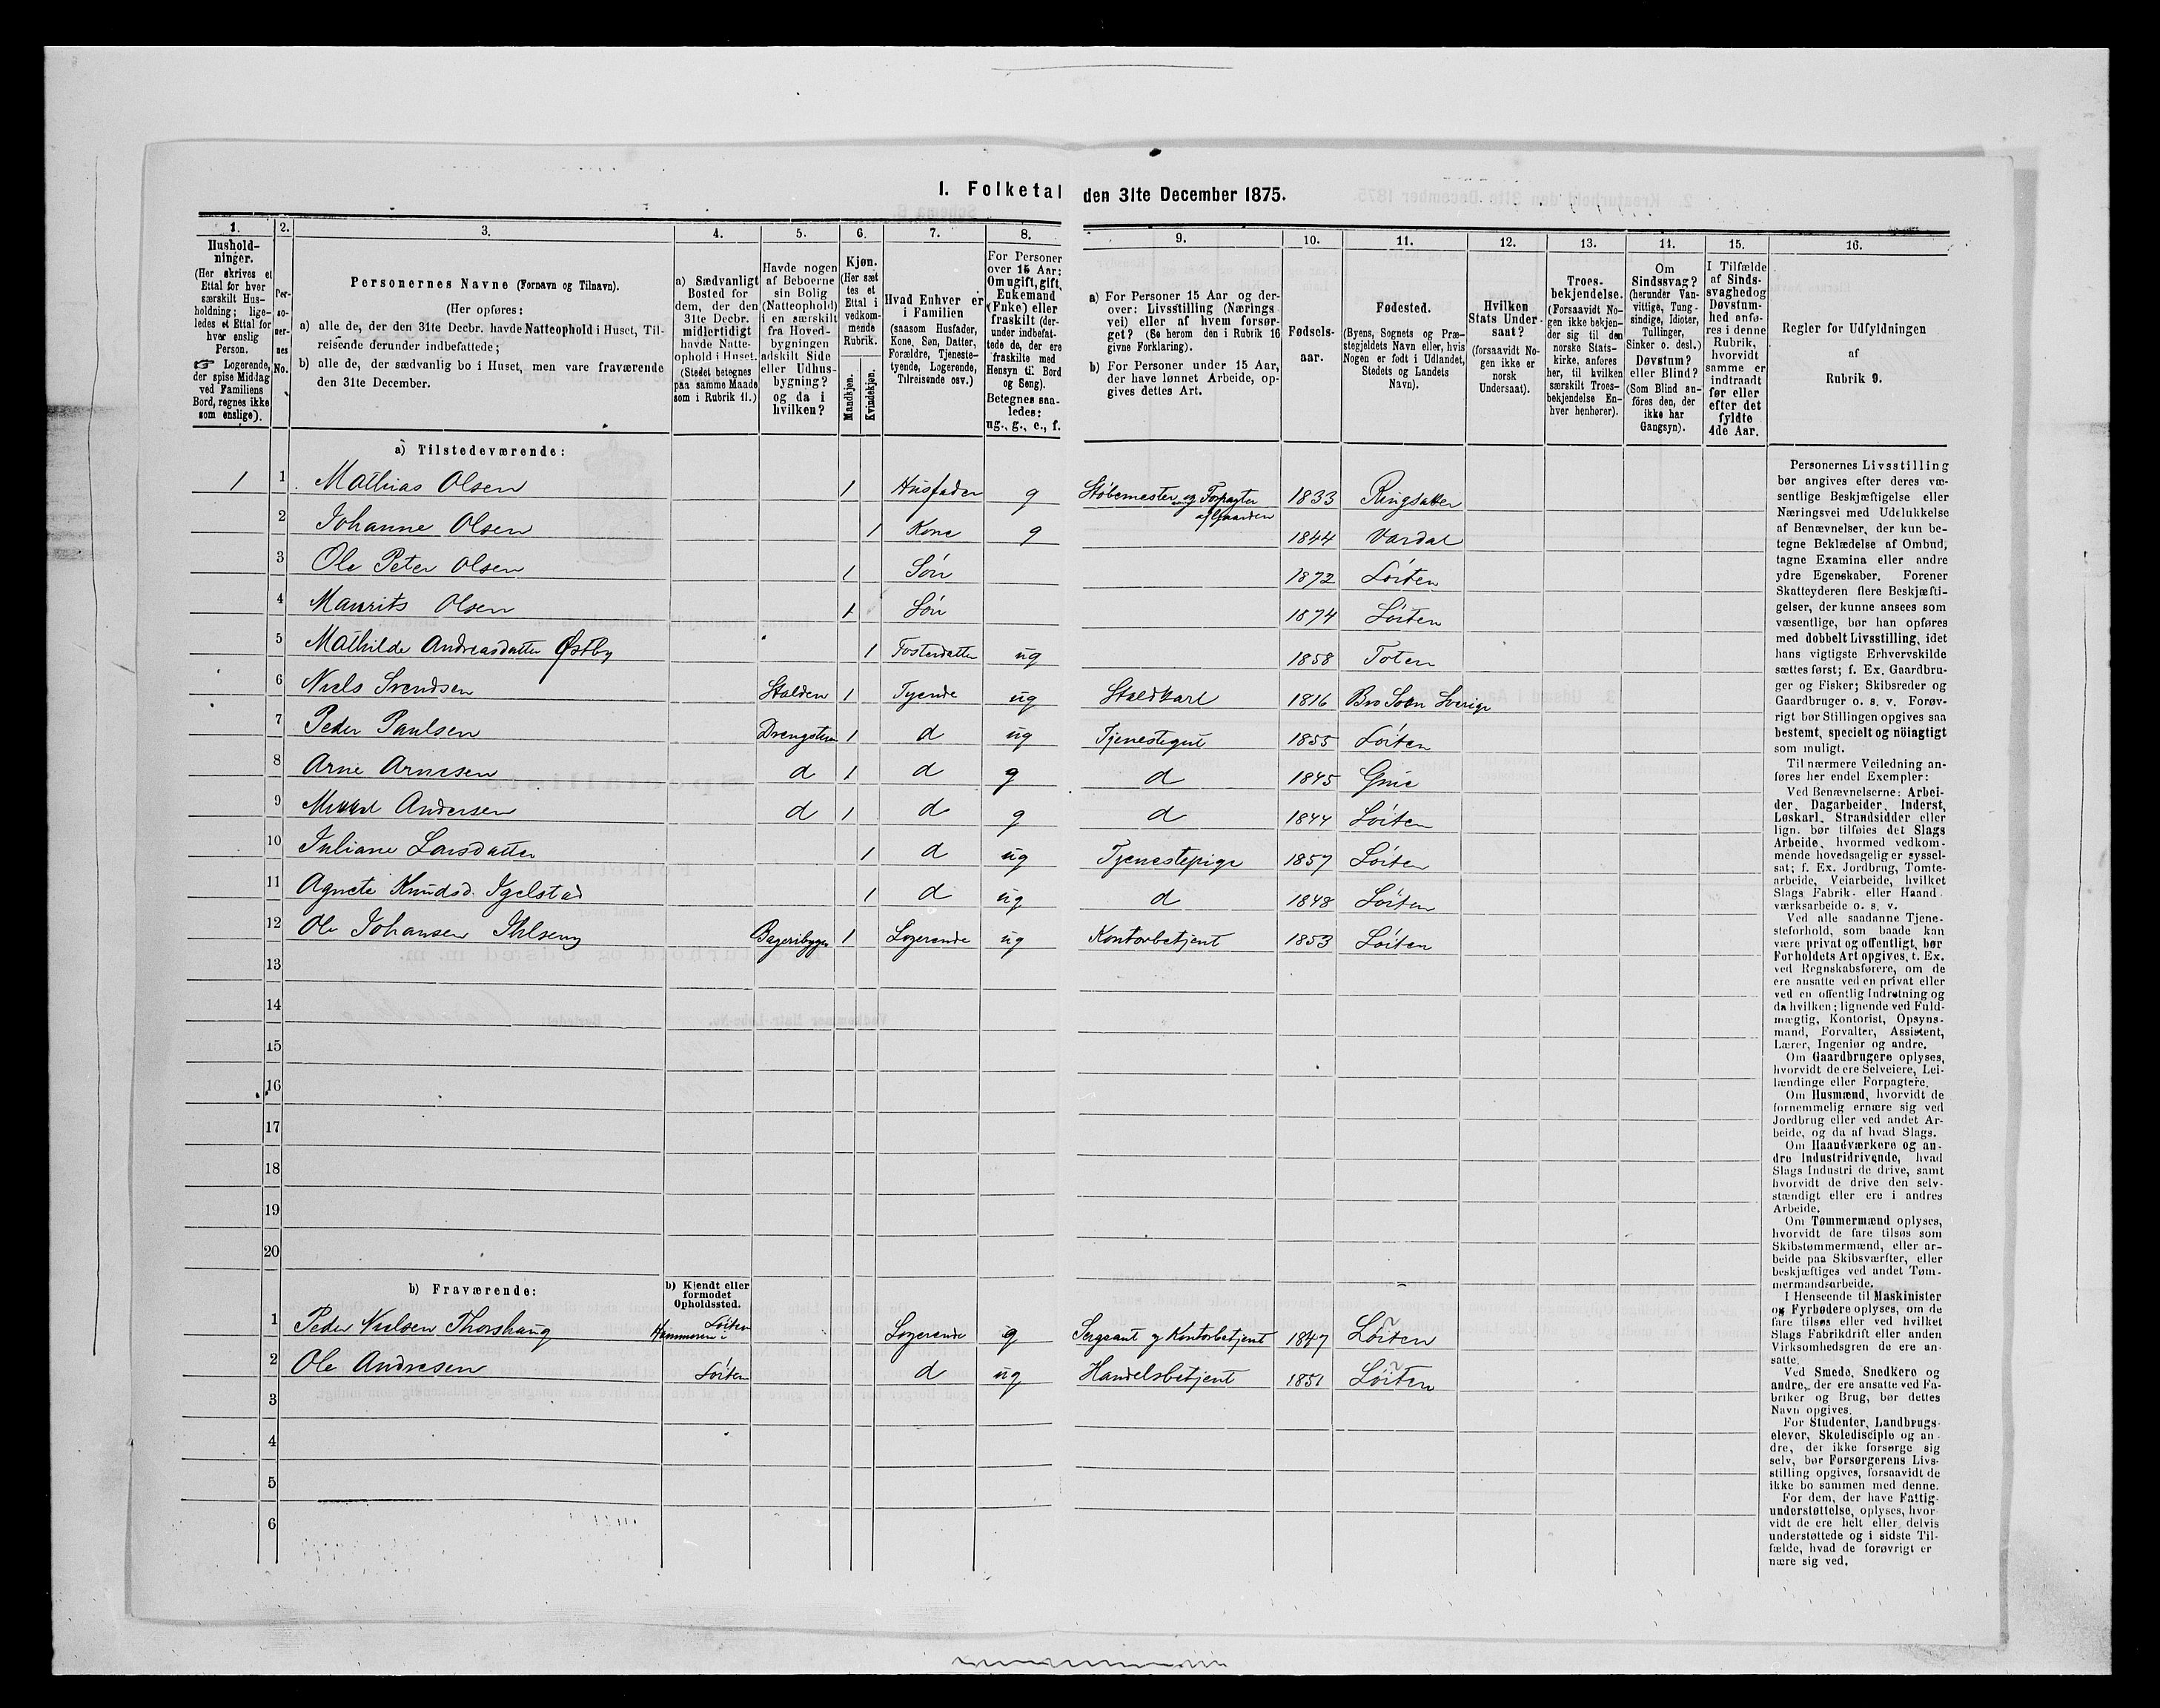 1. Folketal den 31te December 1875.
1. 2. 3. 4. 5. 6. 7. 8. 9. 10. 11. 12. 13. 14. 15. 16.
Hushold-
ninger.
(Her skrives et
Ettal for hver
særskilt Hus-
holdning; lige-
ledes et Ettal for
hver enslig
Person.
☞ Logerende,
der spise Middag
ved Familiens
Bord, regnes ikke
som enslige).
Per-
so-
ner-
nes
No.
Personernes Navne (Fornavn og Tilnavn).
(Her opføres:
a) alle de, der den 31te Decbr. havde Natteophold i Huset, Til-
reisende derunder indbefattede;
b) alle de, der sædvanlig bo i Huset, men vare fraværende
den 31te December.
a) Sædvanligt
Bosted for
dem, der den
31te Decbr.
midlertidigt
havde Natte-
ophold i Huset.
(Stedet betegnes
paa samme Maade
som i Rubrik 11.)
Havde nogen
af Beboerne
sin Bolig
(Natteophold)
i en særskilt
fra Hoved-
bygningen
adskilt Side
eller Udhus-
bygning?
og da i
hvilken?
Kjøn.
(Her sæt
tes et
Ettal i
vedkom-
mende
Rubrik.
Mandkjøn.
Kvindekjøn.
Hvad Enhver er
i Familien
(saasom Husfader,
Kone, Søn, Datter,
Forældre, Tjeneste-
tyende, Logerende,
Tilreisende osv.)
For Personer
over 15 Aar:
Om ugift, gift,
Enkemand
(Enke) eller
fraskilt (der-
under indbefat-
tede de, der ere
fraskilte med
Hensyn til Bord
og Seng).
Betegnes saa-
ledes:
ug., g., e., f.
a) For Personer 15 Aar og der-
over: Livsstilling (Nærings
vei) eller af hvem forsør-
get? (Se herom den i Rubrik 16
givne Forklaring).
b) For Personer under 15 Aar,
der have lønnet Arbeide, op-
gives dettes Art.
Fødsels-
aar.
Fødested.
(Byens, Sognets og Præ-
stegjeldets Navn eller, hvis
Nogen er født i Udlandet,
Stedets og Landets
Navn).
Hvilken
Stats Under-
saat?
(forsaavidt No-
gen ikke er
norsk
Undersaat).
Troes-
bekjendelse.
(Forsaavidt No-
gen ikke bekjen-
der sig til den
norske Stats-
kirke, anføres
her, til hvilken
særskilt Troes-
bekjendelse En-
hver henhører).
Om
Sindssvag?
(herunder Van-
vittige, Tung-
sindige, Idioter,
Tullinger,
Sinker o. desl.)
Døvstum?
eller Blind?
(Som Blind an-
føres den, der
ikke har
Gangsyn).
I Tilfælde
af Sinds-
svaghed og
Døvstum-
hed anfø-
res i denne
Rubrik,
hvorvidt
samme er
indtraadt
før eller
efter det
fyldte
4de Aar.
Regler for Udfyldningen
af
Rubrik 9.
a) Tilstedeværende:
1 1 Mathias Olsen 1 Husfader g Støbemester og Forpagter af Gaarden 1833 Ringsaker
2 Johanne Olsen 1 Kone g 1844 Vardal
3 Ole Peter Olsen 1 Søn 1872 Löiten
4 Maurits Olsen 1 Søn 1874 Löiten
5 Mathilde Andreasdatter Østby 1 Fosterdatter ug 1858 Toten
6 Niels Svendsen Stalden 1 Tyende ug Staldkarl 1816 Bro Sogn Sverige
7 Peder Paulsen Drengstuen 1 d ug Tjenestegut 1855 Löiten
8 Arne Arnesen d 1 d g d 1845 Grue
9 Mikkel Andersen d 1 d g d 1844 Löiten
10 Juliane Larsdatter 1 d ug Tjenestepige 1857 Löiten
11 Agnete Knudsd. Igelstad 1 d ug d 1848 Löiten
12 Ole Johansen Ihlseng Bageribygn 1 Logerende ug Kontorbetjent 1853 Löiten
13
14
15
16
17
18
19
20
b) Fraværende:
b) Kjendt eller
formodet
Opholdssted.
1 Peder Nielsen Thorshaug Hammeren i Löiten Logerende g Sergeant og Kontorbetjent 1847 Löiten
2 Ole Andresen Löiten d ug Handelsbetjent 1851 Löiten
3
4
5
6
Personernes Livsstilling
bør angives efter deres væ-
sentlige Beskjæftigelse eller
Næringsvei med Udelukkelse
af Benævnelser, der kun be-
tegne Beklædelse af Ombud,
tagne Examina eller andre
ydre Egenskaber. Forener
Skatteyderen flere Beskjæfti-
gelser, der kunne ansees som
væsentlige, bør han opføres
med dobbelt Livsstilling, idet
hans vigtigste Erhvervskilde
sættes først; f. Ex. Gaardbru-
ger og Fisker; Skibsreder og
Gaardbruger o. s. v. Forøv-
rigt bør Stillingen opgives saa
bestemt, specielt og nöiagtigt
som muligt.
Til nærmere Veiledning an-
føres her endel Exempler:
Ved Benævnelserne: Arbei-
der, Dagarbeider, Inderst,
Løskarl, Strandsidder eller
lign. bør tilføies det Slags
Arbeide, hvormed vedkom-
mende hovedsagelig er syssel-
sat; f. Ex. Jordbrug, Tomte-
arbeide, Veiarbeide, hvilket
Slags Fabrik- eller Haand
værksarbeide o. s. v.
Ved alle saadanne Tjene-
steforhold, som baade kan
være privat og offentligt, bør
Forholdets Art opgives, t. Ex.
ved Regnskabsførere, om de
ere ansatte ved en privat eller
ved en offentlig Indretning og
da hvilken; lignende ved Fuld-
mægtig, Kontorist, Opsyns-
mand, Forvalter, Assistent,
Lærer, Ingeniør og andre.
Om Gaardbrugere oplyses,
hvorvidt de ere Selveiere, Lei-
lændinge eller Forpagtere.
Om Husmænd, hvorvidt de
fornemmelig ernære sig ved
Jordbrug eller ved andet Ar-
beide, og da af hvad Slags.
Om Haandværkere og an-
dre Industridrivende, hvad
Slags Industri de drive, samt
hvorvidt de drive den selv-
stændigt eller ere i andres
Arbeide.
Om Tømmermænd oplyses,
hvorvidt de fare tilsøs som
Skibstømmermænd, eller ar-
beide paa Skibsværfter, eller
beskjæftiges ved andet Tøm-
mermandsarbeide.
I Henseende til Maskinister
og Fyrbødere oplyses, om de
fare tilsøs eller ved hvilket
Slags Fabrikdrift eller anden
Virksomhedsgren de ere an-
satte.
Ved Smede, Snedkere og
andre, der ere ansatte ved Fa-
briker og Brug, bør dettes
Navn opgives.
For Studenter, Landbrugs-
elever, Skoledisciple og an-
dre, der ikke forsørge sig
selv, bør Forsørgerens Livs-
stilling opgives, forsaavidt de
ikke bo sammen med denne.
For dem, der have Fattig-
understøttelse, oplyses, hvor-
vidt de ere helt eller delvis
understøttede og i sidste Til-
fælde, hvad de forøvrigt er
nære sig ved.